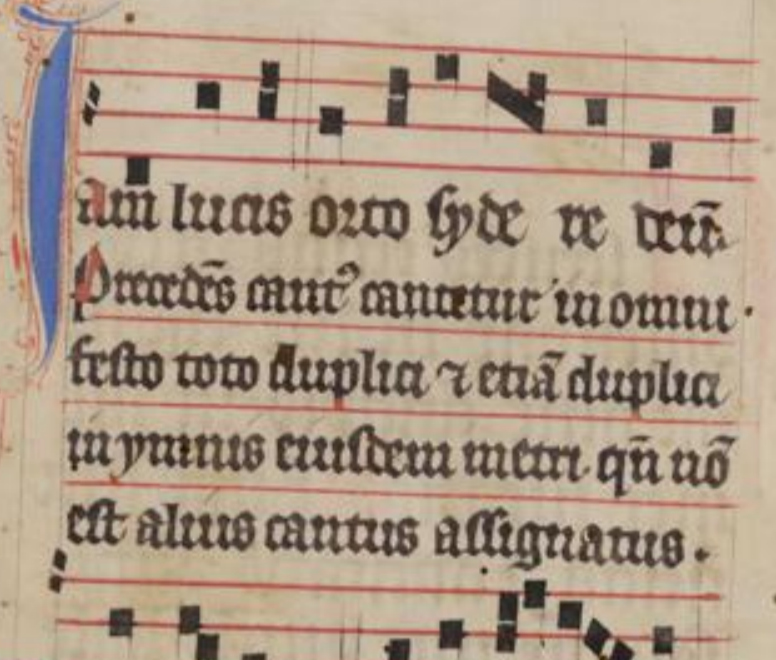 Iam lucis orto syde re deū.
Precedēs cantꝰ cantetur in omni
festo toto duplici ⁊ etiā duplici
in ymnis eiusdem metri qn̄ nō
est alius cantus assignatus.